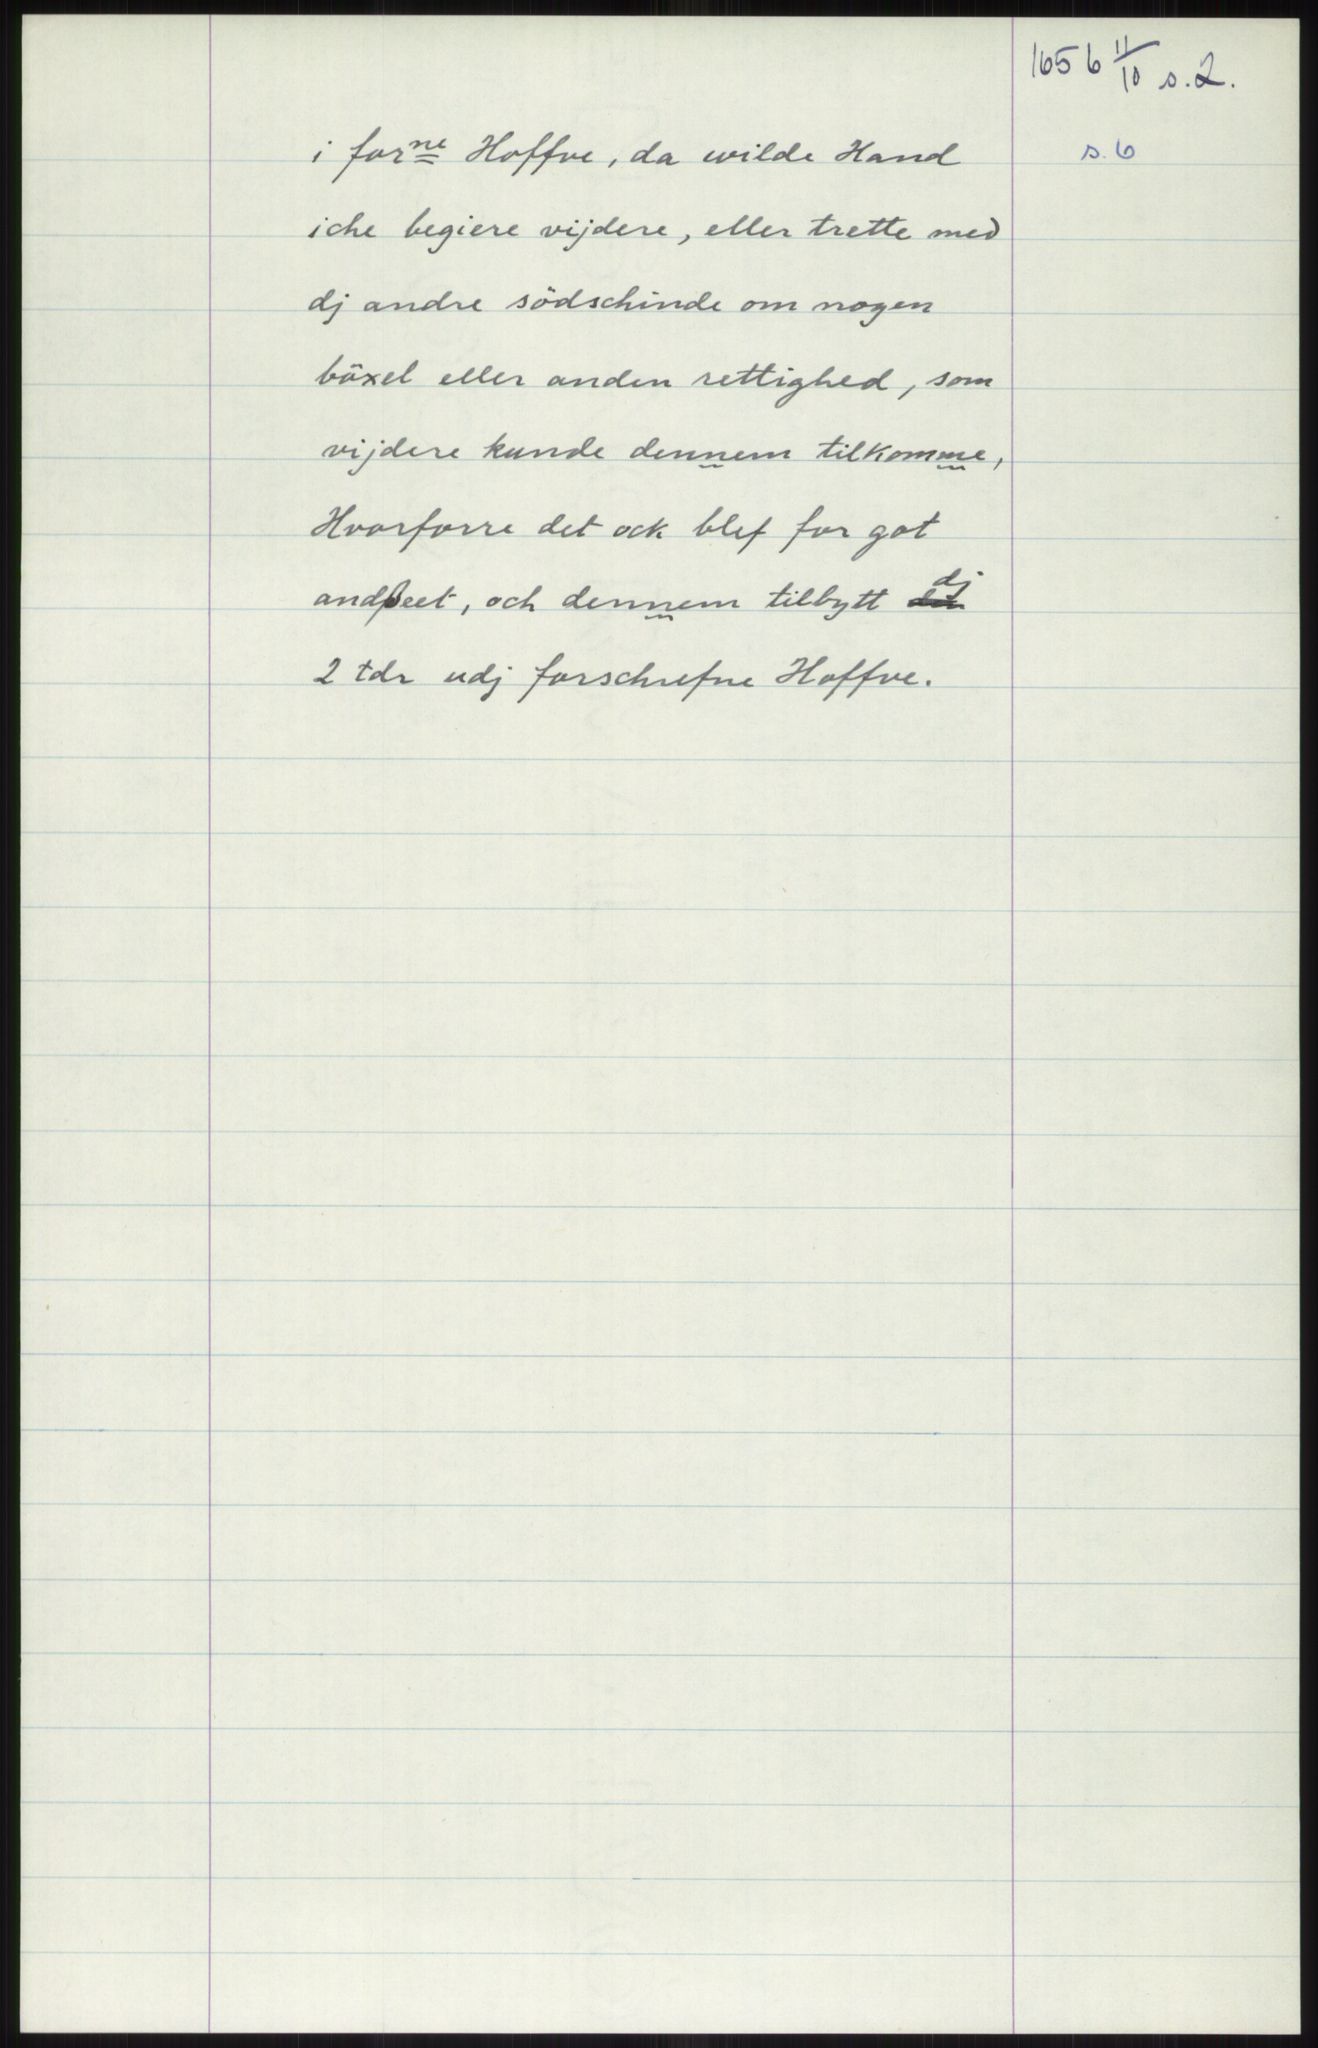 1656 11/10 s. 2.
s. 6
i forne Hoffve, da wilde Hand
iche begiere vijdere, eller trette med
dj andre södschinde om nogen
böxel eller anden rettighed, som
vijdere kunde dennem tilkomme,
Hvorforre det ock blef for got
andßeet, och dennem tilbytt dj
2 tdr udj forschrefne Hoffve.